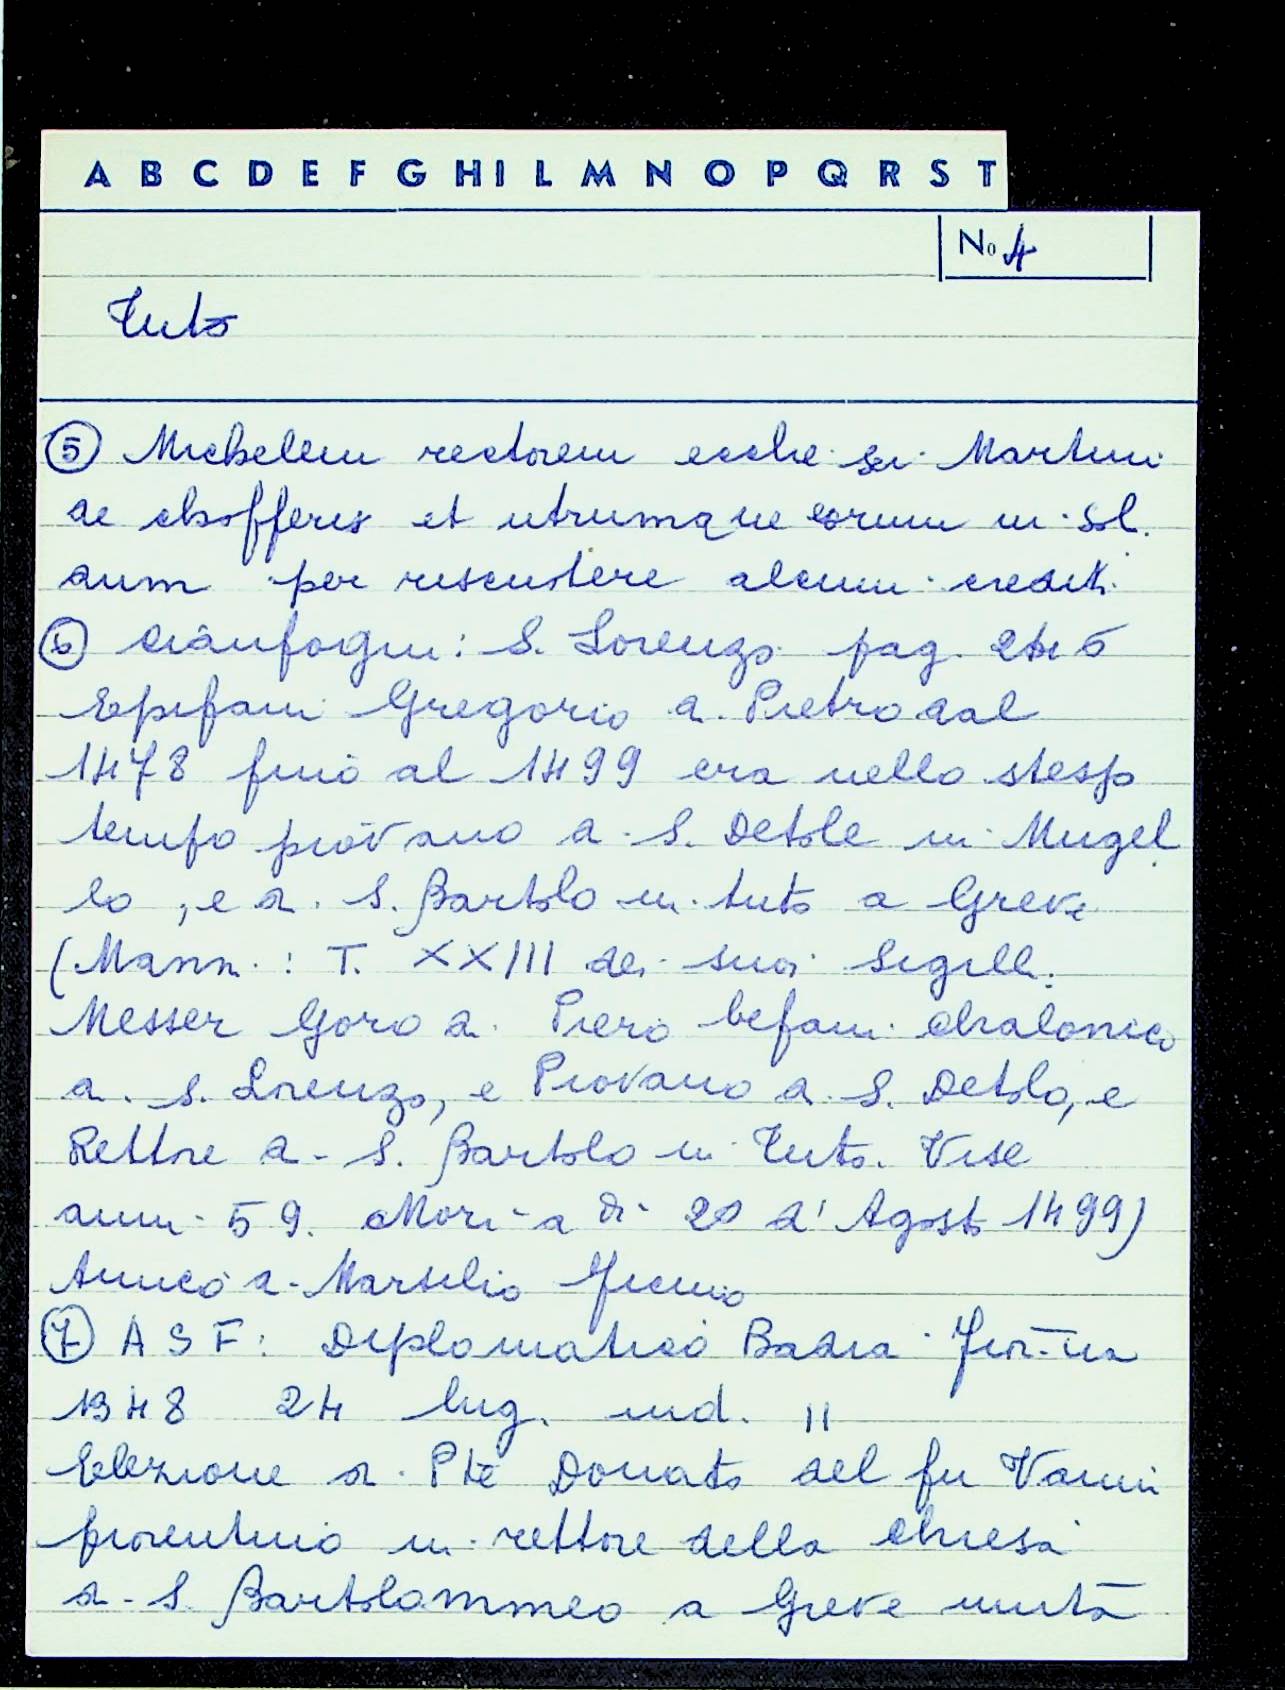 A B C D E F G H I L M N O P Q R S T
No 4
Tuto
⑤ Michelem rectorem ecche sci Martini
de chofferis et utrumque eorum in sol.
dum per riscuotere alcuni crediti
⑥ Cianfogni: S. Lorenzo pag. 246
Epifani Gregorio di Pietro dal
1478 fino al 1499 era nello stesso
tempo piovano di S. Detole in Mugel
lo, e di S. Bartolo in tuto a Greve
(Mann.: T. XXIII dei suoi Sigill.
Messer Goro di Piero befani chalonico
di S. Lorenzo, e Piovano di S. Detolo, e
Rettore di S. Bartolo in Tuto. Vise
anni 59. Morì a dì 20 d'Agosto 1499)
Amico di Marsilio Ficino
⑦ ASF: Diplomatico Badia Fior.na
1348 24 lug. ind. II
Elezione di Pte Donato del fu Vanni
fiorentino in rettore della chiesa
di S. Bartolommeo a Greve unità